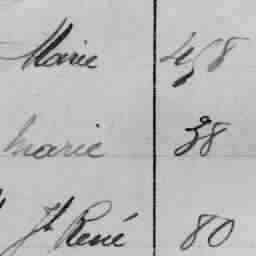 Marie 458
Marie 38
Jh René 80